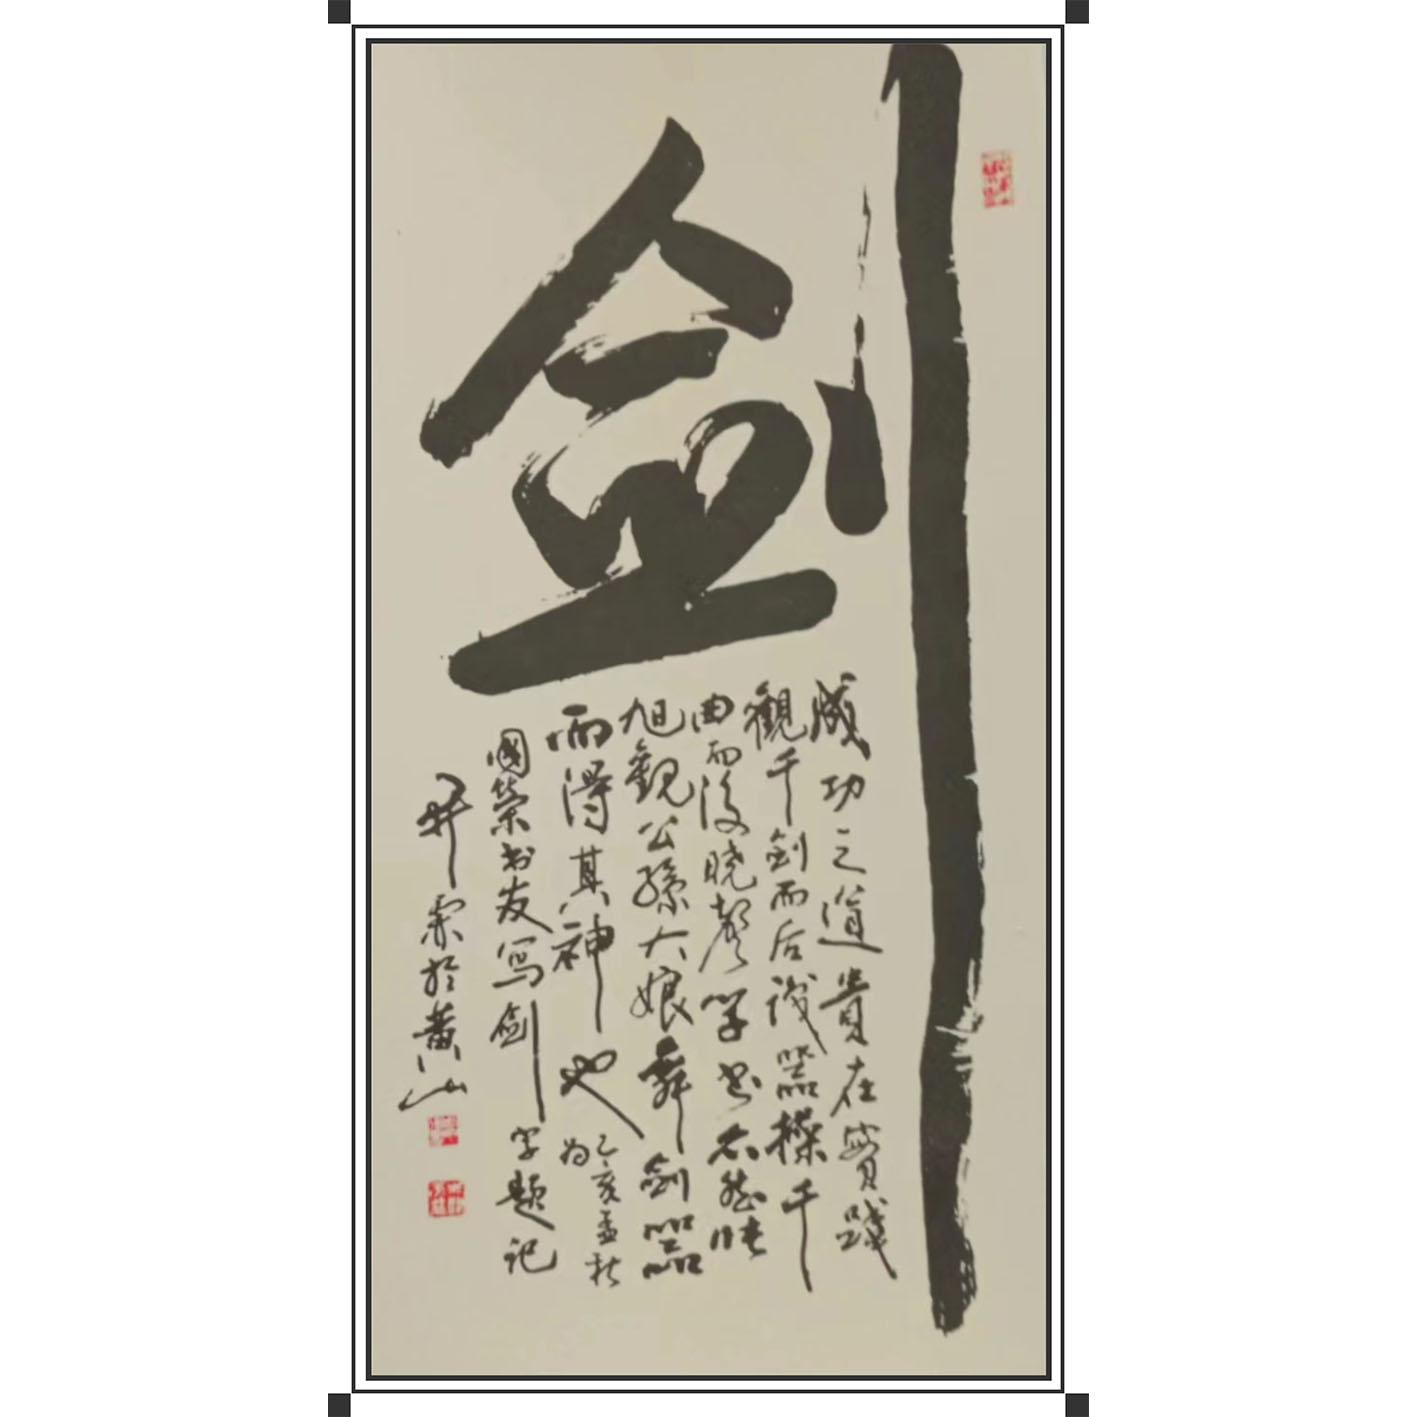 剑
成功之道貴在實踐
觀千剑而后识器操千
曲而後晓聲学书亦然张
旭觀公孫大娘舞剑器
而得其神也乙亥孟秋为
國荣书友写剑字题记
于黄山